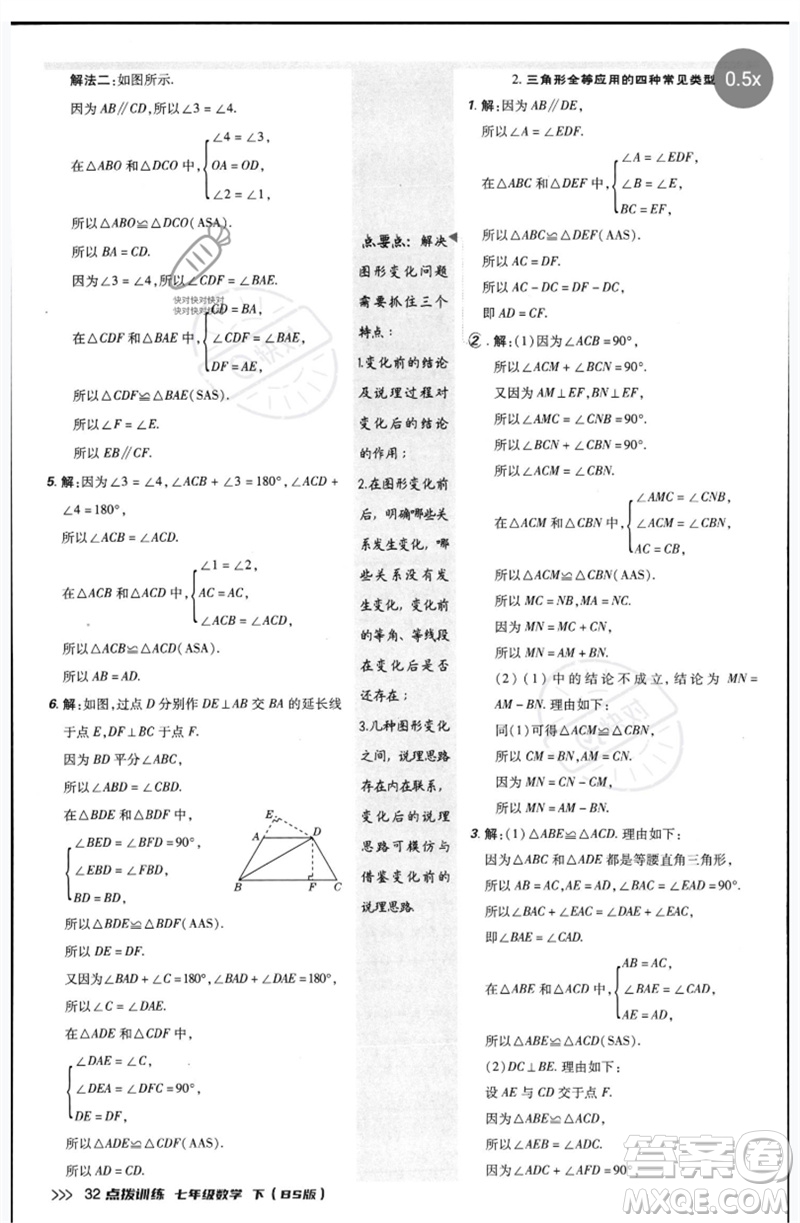 解法二:如图所示.
因为 AB∥CD,所以∠3 = ∠4.
在△ABO 和△DCO 中,
∠4 = ∠3,
OA = OD,
∠2 = ∠1,
所以△ABO≌△DCO(ASA).
所以 BA = CD.
因为∠3 = ∠4,所以∠CDF = ∠BAE.
在△CDF 和△BAE 中,
CD = BA,
∠CDF = ∠BAE,
DF = AE,
所以△CDF≌△BAE(SAS).
所以∠F = ∠E.
所以 EB∥CF.
5. 解:因为∠3 = ∠4,∠ACB + ∠3 = 180°,∠ACD +
∠4 = 180°,
所以∠ACB = ∠ACD.
在△ACB 和△ACD 中,
∠1 = ∠2,
AC = AC,
∠ACB = ∠ACD,
所以△ACB≌△ACD(ASA).
所以 AB = AD.
6. 解:如图,过点 D 分别作 DE⊥AB 交 BA 的延长线
于点 E,DF⊥BC 于点 F.
因为 BD 平分∠ABC,
所以∠ABD = ∠CBD.
在△BDE 和△BDF 中,
∠BED = ∠BFD = 90°,
∠EBD = ∠FBD,
BD = BD,
E
A
D
B
F
C
所以△BDE≌△BDF(AAS).
所以 DE = DF.
又因为∠BAD + ∠C = 180°,∠BAD + ∠DAE = 180°,
所以∠C = ∠DAE.
在△ADE 和△CDF 中,
∠DAE = ∠C,
∠DEA = ∠DFC = 90°,
DE = DF,
所以△ADE≌△CDF(AAS).
所以 AD = CD.
点要点:解决
图形变化问题
需要抓住三个
特点:
1.变化前的结论
及说理过程对
变化后的结论
的作用;
2.在图形变化前
后,明确哪些关
系发生变化,哪
些关系没有发
生变化,变化前
的等角、等线段
在变化后是否
还存在;
3.几种图形变化
之间,说理思路
存在内在联系,
变化后的说理
思路可模仿与
借鉴变化前的
说理思路.
2. 三角形全等应用的四种常见类型
0.5x
1. 解:因为 AB∥DE,
所以∠A = ∠EDF.
在△ABC 和△DEF 中,
∠A = ∠EDF,
∠B = ∠E,
BC = EF,
所以△ABC≌△DEF(AAS).
所以 AC = DF.
所以 AC - DC = DF - DC,
即 AD = CF.
②. 解:(1)因为∠ACB = 90°,
所以∠ACM + ∠BCN = 90°.
又因为 AM⊥EF,BN⊥EF,
所以∠AMC = ∠CNB = 90°.
所以∠BCN + ∠CBN = 90°.
所以∠ACM = ∠CBN.
在△ACM 和△CBN 中,
∠AMC = ∠CNB,
∠ACM = ∠CBN,
AC = CB,
所以△ACM≌△CBN(AAS).
所以 MC = NB,MA = NC.
因为 MN = MC + CN,
所以 MN = AM + BN.
(2)(1)中的结论不成立,结论为 MN =
AM - BN. 理由如下:
同(1)可得△ACM≌△CBN(AAS).
所以 CM = BN,AM = CN.
因为 MN = CN - CM,
所以 MN = AM - BN.
3. 解:(1)△ABE≌△ACD. 理由如下:
因为△ABC 和△ADE 都是等腰直角三角形,
所以 AB = AC,AE = AD,∠BAC = ∠EAD = 90°.
所以∠BAC + ∠EAC = ∠DAE + ∠EAC,
即∠BAE = ∠CAD.
在△ABE 和△ACD 中,
AB = AC,
∠BAE = ∠CAD,
AE = AD,
所以△ABE≌△ACD(SAS).
(2)DC⊥BE. 理由如下:
设 AE 与 CD 交于点 F.
因为△ABE≌△ACD,
所以∠AEB = ∠ADC.
因为∠ADC + ∠AFD = 90°,
>>> 32 点拨训练 七年级数学 下(BS版)
快对快对快对
快对快对快对
快对
答案圈
MXQE.COM